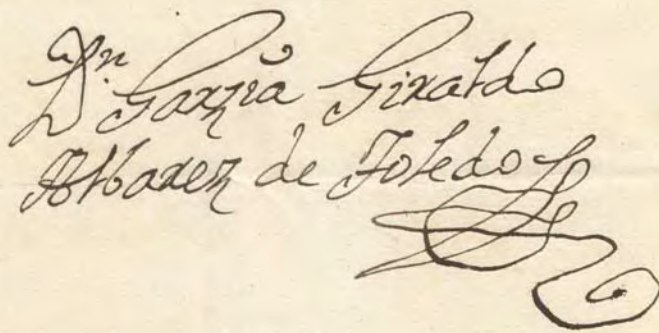 Dn. Garzia Giraldo
Albarez de Toledo